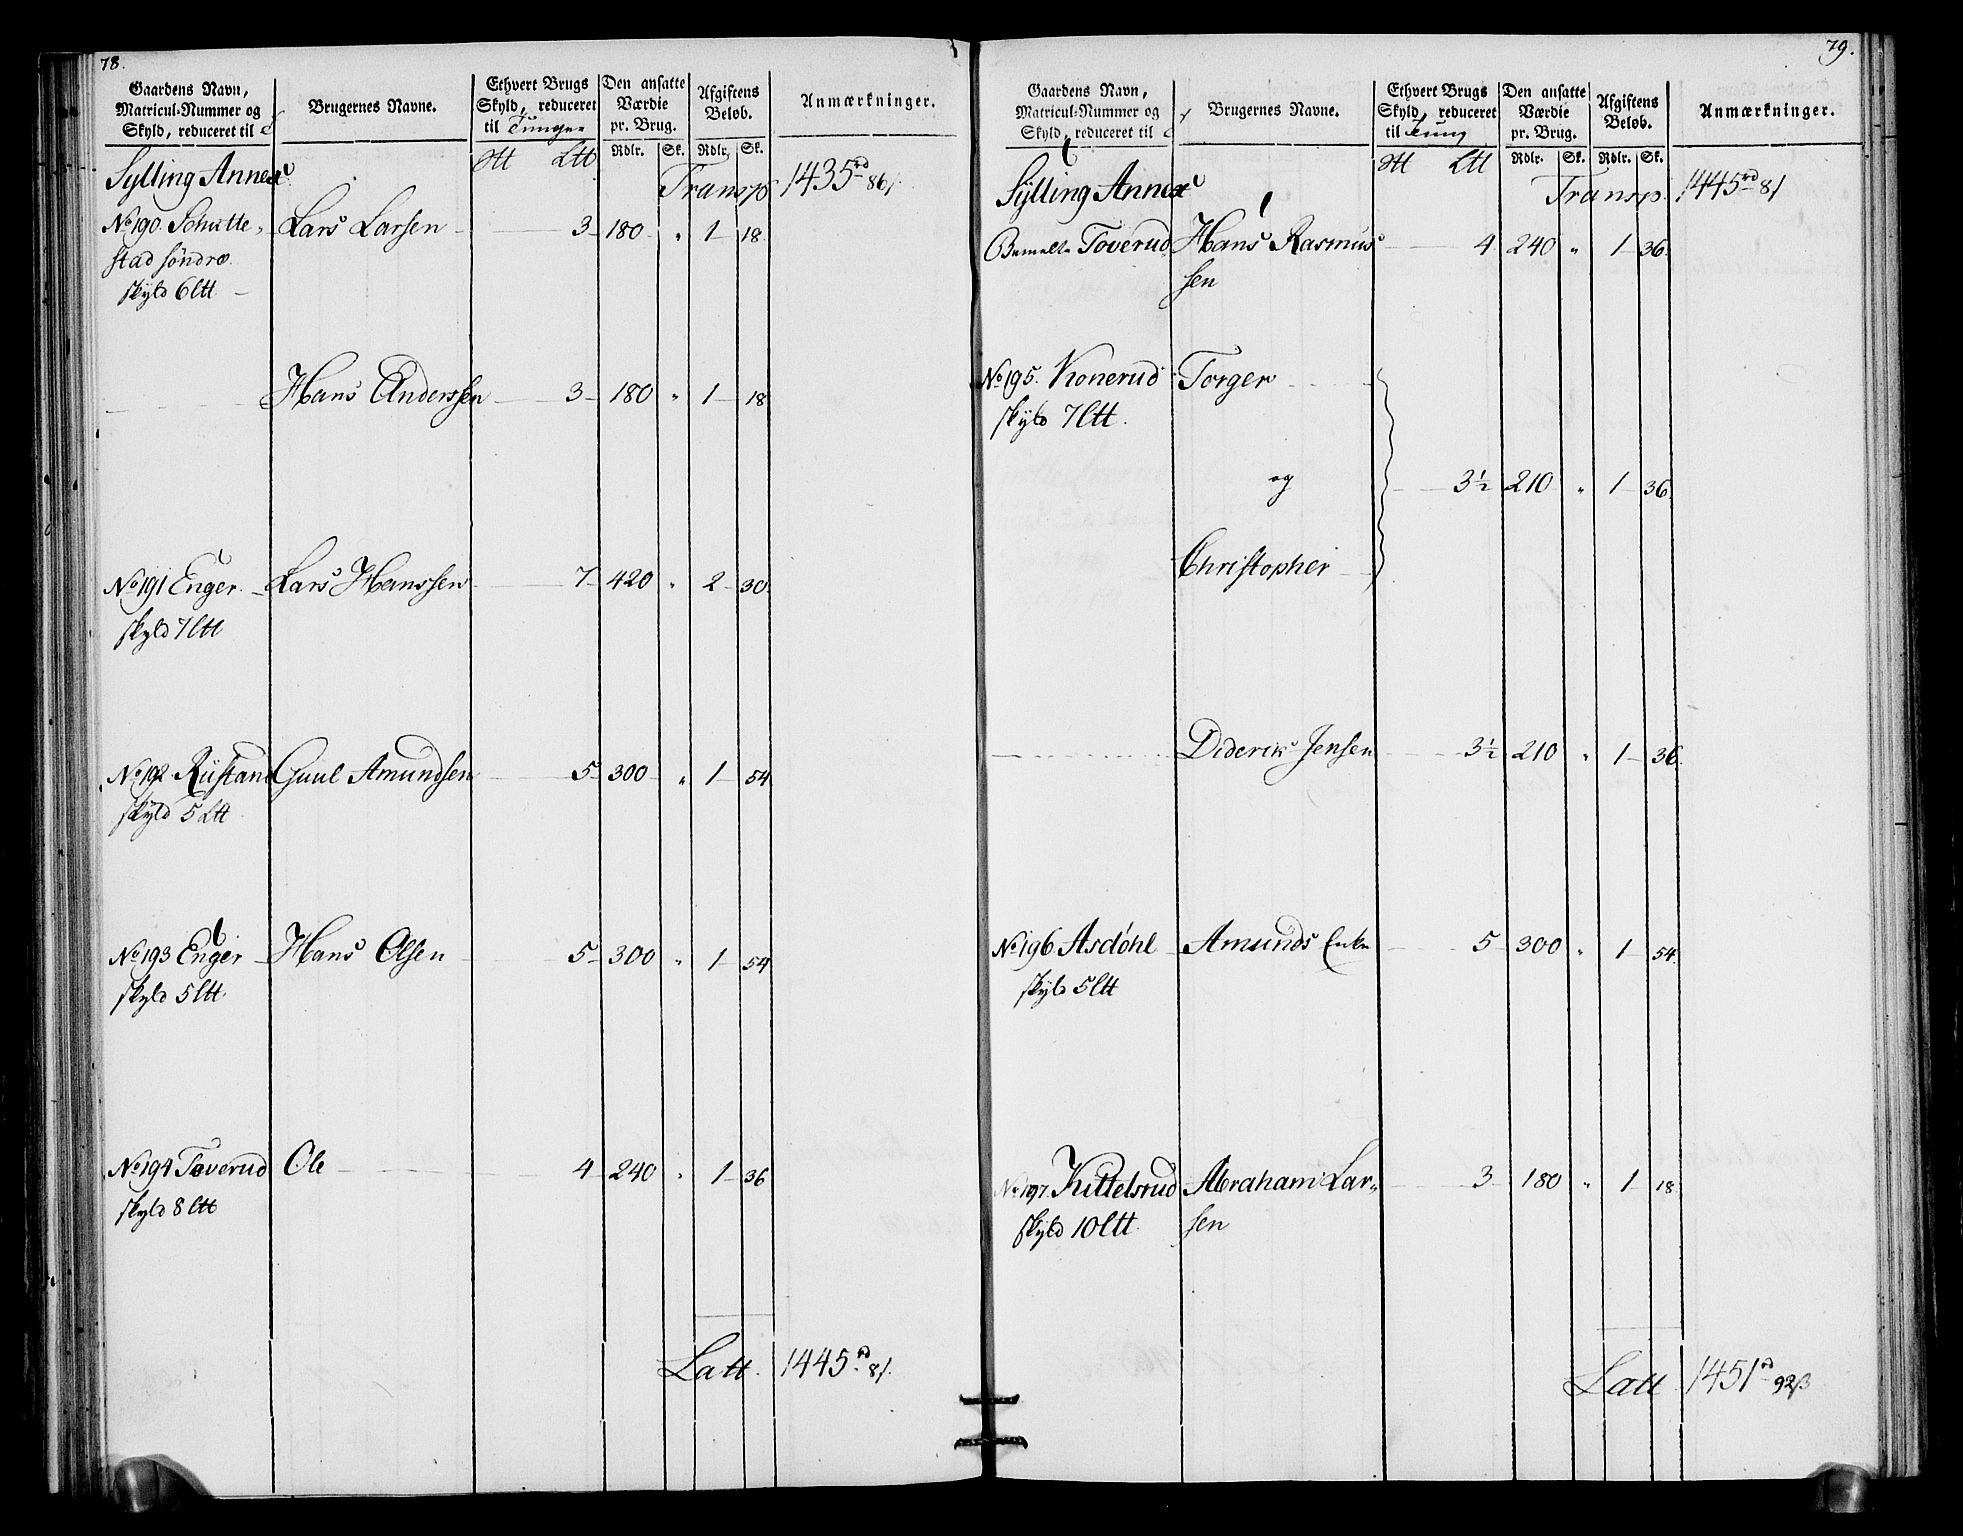 78.
Gaardens Navn, Matricul-Nummer og Skyld, reduceret til
Brugernes Navne.
Ethvert Brugs Skyld, reduceret til Tunger
Den ansatte Værdie pr. Brug.
Afgiftens Beløb.
Anmærkninger.
Rdlr. Sk. Rdlr. Sk.
Sylling Annex Ltt Transp 1435 rd 86 s.
No 190. Schutte- Lars Larsen 3 180 " 1 18
stad søndre
skyld 6 ltt
Hans Anderssen 3 180 " 1 18
No 191 Enger Lars Hanssen 7 420 " 2 30
skyld 7 ltt
No 192 Rustand Guul Amundsen 5 300 " 1 54
skyld 5 Ltt
No 193 Enger Hans Olsen 5 300 " 1 54
skyld 5 ltt
No 194 Toverud Ole 4 240 " 1 36
skyld 8 ltt
Latt. 1445 rd 8 s.
79.
Gaardens Navn, Matricul-Nummer og Skyld, reduceret til
Brugernes Navne.
Ethvert Brugs Skyld, reduceret til Tung
Den ansatte Værdie pr. Brug.
Afgiftens Beløb.
Anmærkninger.
Rdlr. Sk. Rdlr. Sk.
Sylling Annex Ltt Transp. 1445 rd 8 s
Bemelte Toverud Hans Rasmus 4 240 " 1 36
sen
No 195. Konerud Torger
skyld 7 ltt.
og 3½ 210 " 1 36
Christopher
Diderik Jensen 3½ 210 " 1 36
No 196 Asdøhl Amunds Enke 5 300 " 1 54
skyld 5 ltt
No 197. Kittelsrud Abraham Lar- 3 180 " 1 18
skyld 10 ltt sen
Latt 1451 rd 92 ß